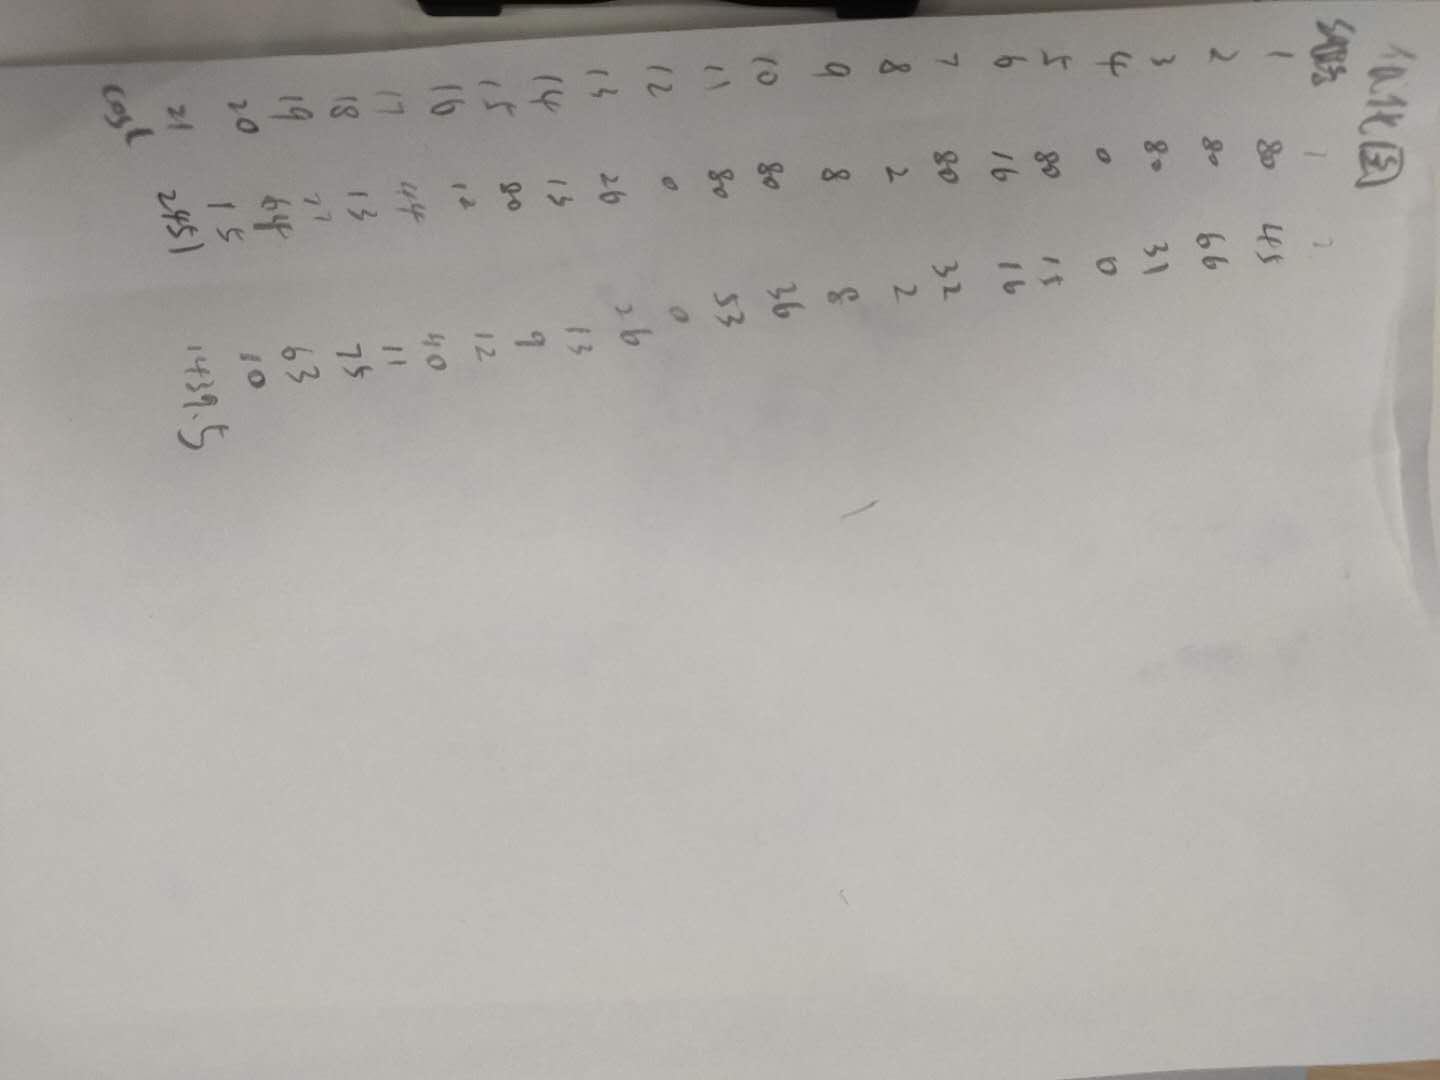 化图
1 2
1 80 45
2 80 66
3 80 31
4 0 0
5 80 15
6 16 16
7 80 32
8 2 2
9 8 8
10 80 36
11 80 53
12 0 0
13 26 26
14 13 13
15 80 9
16 12 12
17 44 40
18 13 11
19 77 75
20 64 63
21 15 10
cost 2451 1439.5